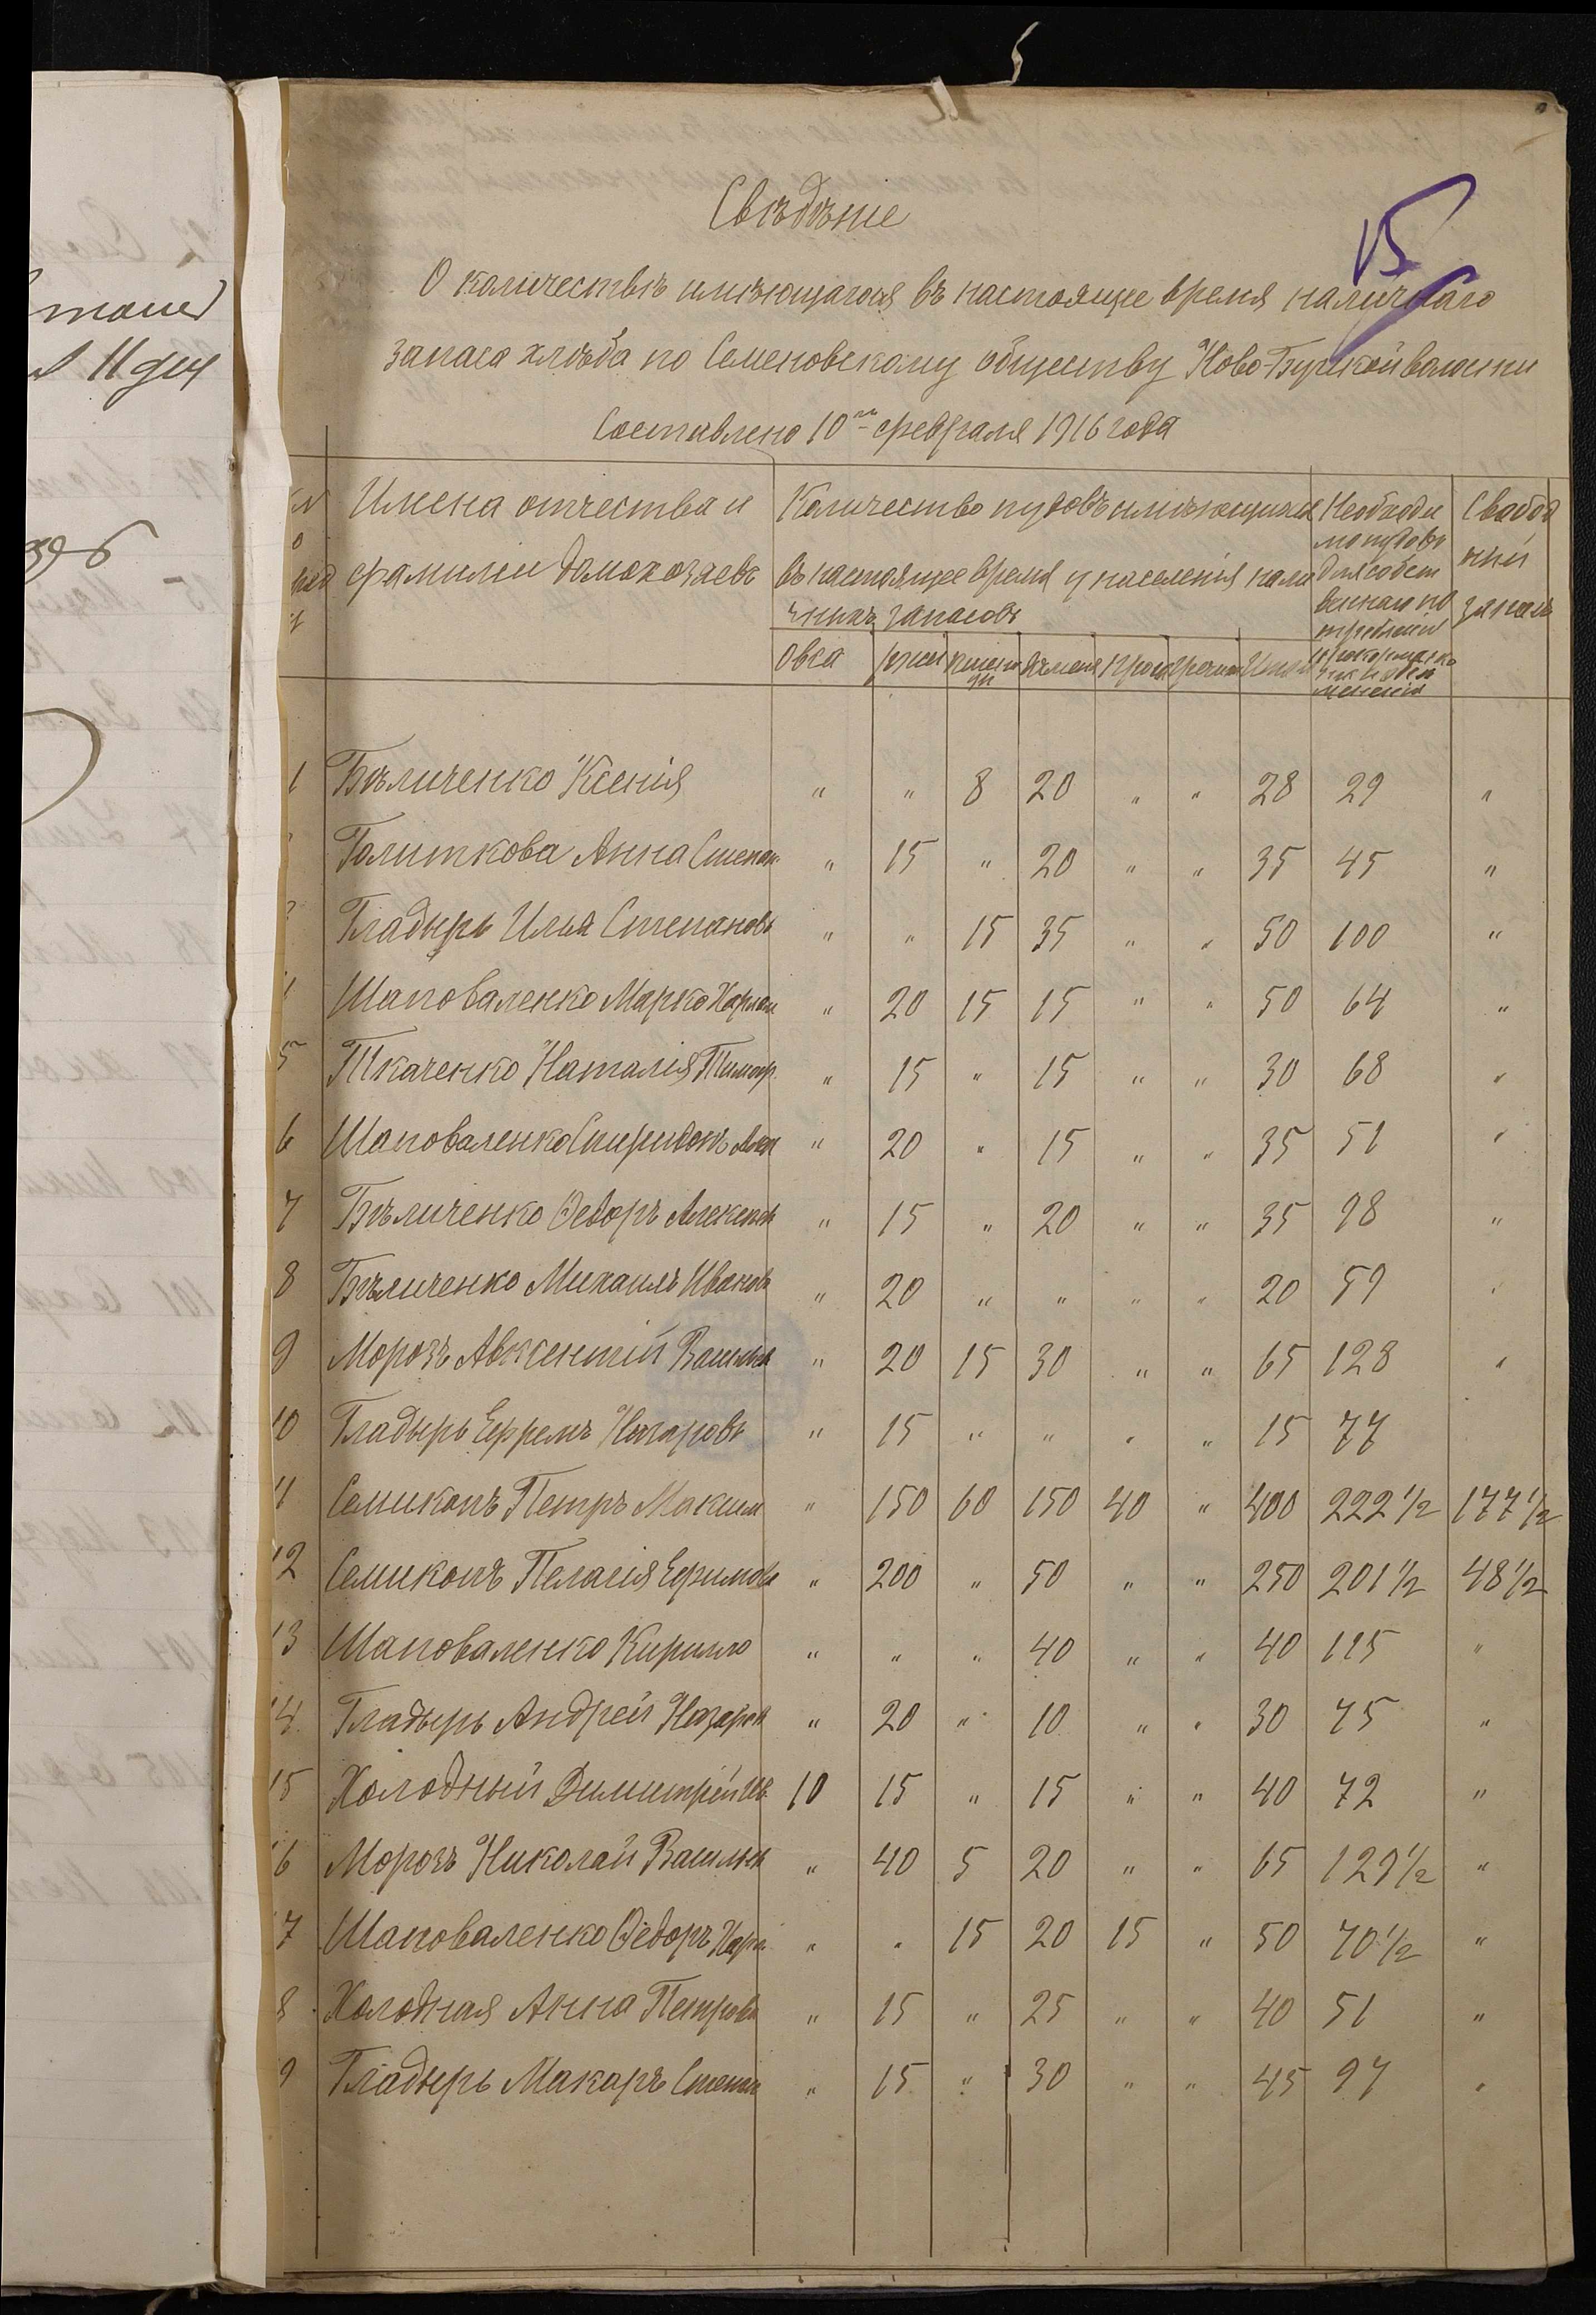 15
Свѣдѣніе
О каличествѣ имѣющагося въ настоящее время наличнаго
запаса хлѣба по Семеновскому обществу Ново-Бугской волости
Составлено 10го февраля 1916 года
Имена отчества и фамилии домохозяевъ
Количество пудовъ имѣющихся въ настоящее время у населенія нали чныхъ запасовъ
Необходи мо пудовъ для собст веннаго по требленія
Свабод ний запасъ
Овса ржи пшени цы ячменя проса гречихи Итого
1 Бѣличенко Ксенія " " 8 20 " " 28 29 "
Голиткова Анна Степан. " 15 " 20 " " 35 45 "
Гладырь Илья Степановъ " " 15 35 " " 50 100 "
Шаповаленко Марко Харлам " 20 15 15 " " 50 64 "
5 Ткаченко Наталія Тимоф. " 15 " 15 " " 30 68 "
6 Шаповаленко Спиридонъ " 20 " 15 " " 35 51 "
7 Бѣличенко Ѳедоръ Алексеев " 15 " 20 " " 35 98 "
8 Бѣличенко Михаилъ Ивановъ " 20 " " " " 20 59 "
9 Морозъ Авксентій Васильев " 20 15 30 " " 65 128 "
10 Гладырь Ефремъ Назаровъ " 15 " " " " 15 77
11 Семикопъ Петръ Максим " 150 60 150 40 " 400 222 1/2 177 1/2
12 Семикопъ Пелагія Ефимова " 200 " 50 " " 250 201 1/2 48 1/2
13 Шаповаленко Кирилло " " " 40 " " 40 115 "
14 Гладырь Андрей Назаров " 20 " 10 " " 30 75 "
15 Холодный Димитрій Ив. 10 15 " 15 " " 40 72 "
6 Морозъ Николай Васильев " 40 5 20 " " 65 129 1/2 "
7 Шаповаленко Ѳедоръ Хара " " 15 20 15 " 50 70 1/2 "
8 Холодная Анна Петрова " 15 " 25 " " 40 51 "
9 Гладырь Макаръ Степан " 15 " 30 " " 45 97 "